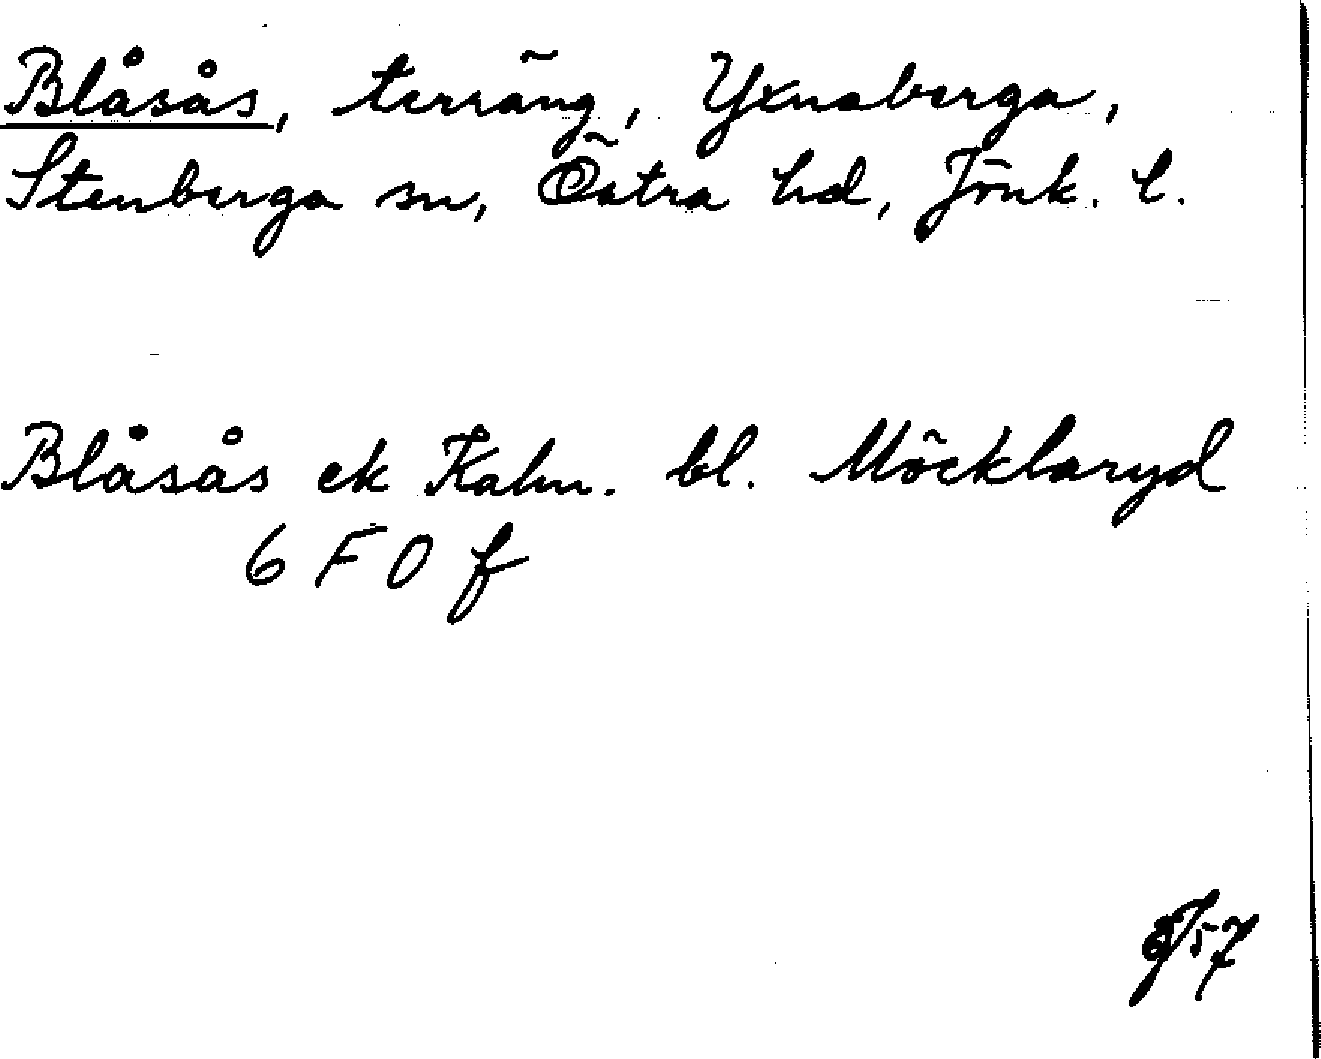 Blåsås, terräng, Yxnaberga,
Stenberga sn, Östra hd, Jönk. l.
Blåsås ek Kaln. bl. Möcklaryd
6 F 0 f